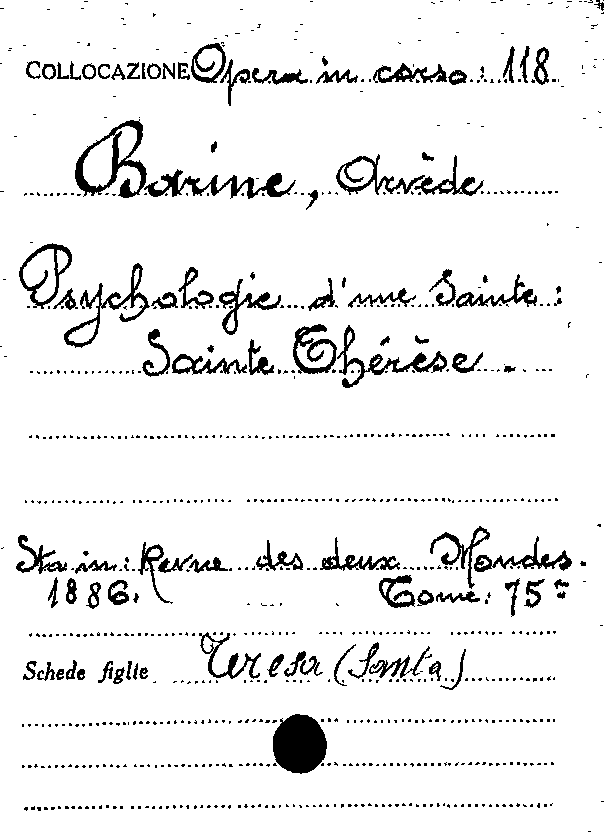 COLLOCAZIONE Opera in corso: 118
Barine, Arvède
Psychologie d'une Sainte:
Sainte Thérèse.
Sta in: Revue des deux Mondes.
1886. Tome: 75
Schede figlie Teresa (Santa)